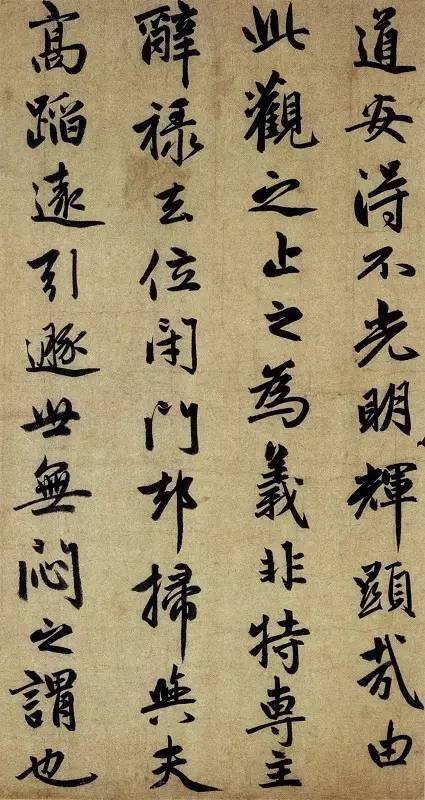 道安得不光明輝顯哉由
此觀之止之為義非特専主
辭禄去位閉門却掃與夫
高蹈遠引遯世無悶之謂也